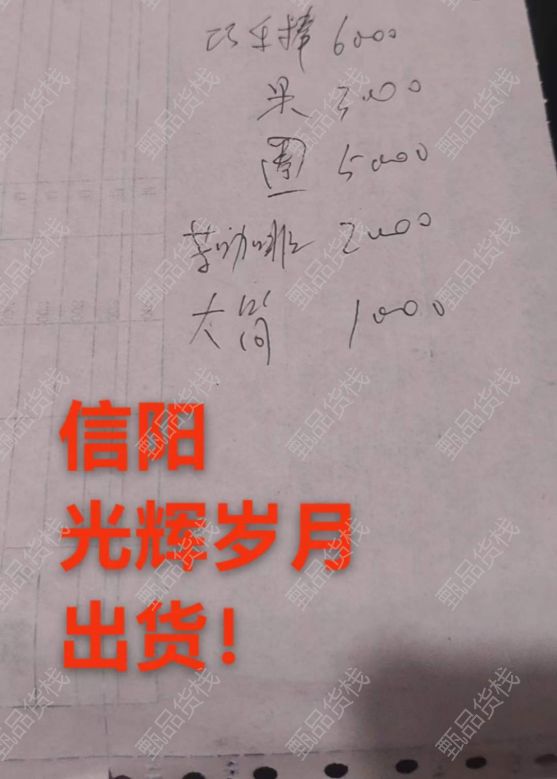 巧乐棒 6000
果 3000
圈 5000
苦咖啡 2000
大筒 1000
信阳
光辉岁月
出货!
甄品货栈